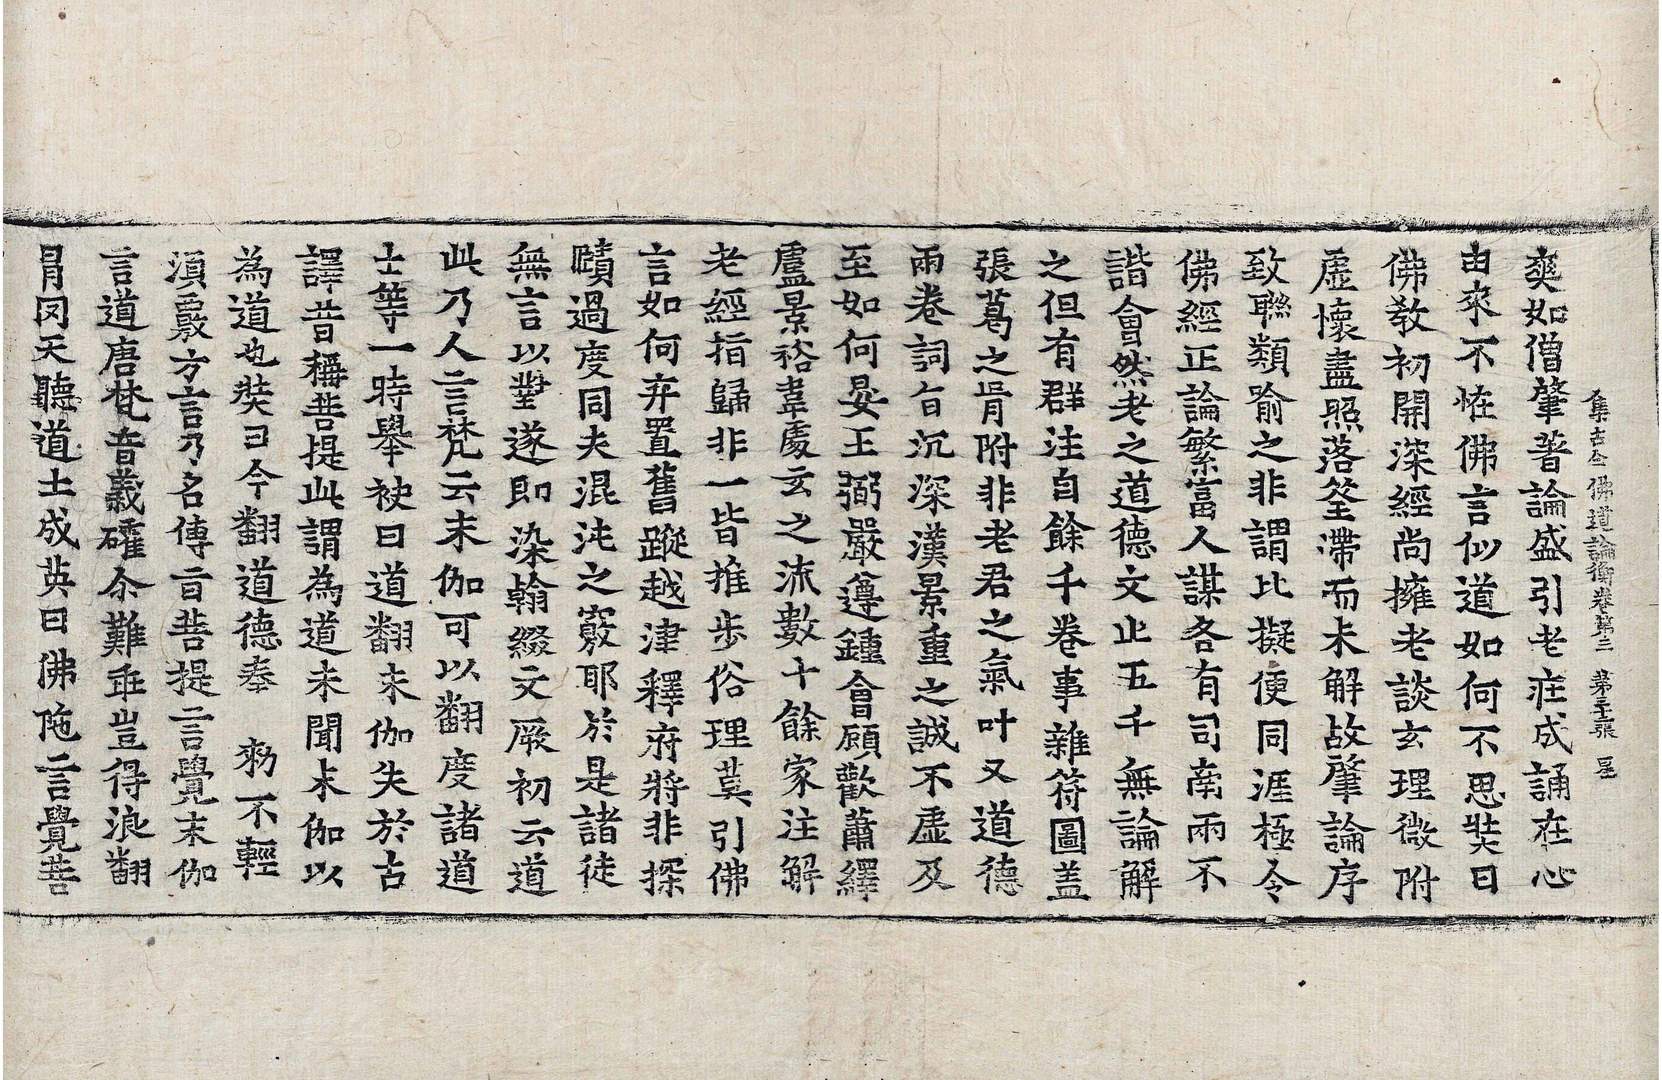 集古今佛道論衡卷第三　第三十張　星
奭如僧肇著論盛引老莊成誦在心
由來不恠佛言似道如何不思奘曰
佛教初開深經尚擁老談玄理微附
虛懷盡照落筌滯而未解故肇論序
致聯類喻之非謂比擬便同涯極今
佛經正論繁富人謀各有司南兩不
諧會然老之道德文止五千無論解
之但有群注自餘千卷事雜符圖盖
張葛之肯附非老君之氣叶又道德
兩卷詞旨沉深漢景重之誠不虛及
至如何晏王弼嚴遵鍾會顧歡蕭繹
盧景裕韋處玄之流數十餘家注解
老經指歸非一皆推步俗理莫引佛
言如何弃置舊蹤越津釋府將非探
賾過度同夫混沌之竅耶於是諸徒
無言以對遂即染翰綴文厥初云道
此乃人言梵云末伽可以翻度諸道
士等一時舉袂曰道翻末伽失於古
譯昔稱菩提此謂為道未聞末伽以
為道也奘曰今翻道德奉　勑不輕
湏覈方言乃名傳旨菩提言覺末伽
言道唐梵音義確尒難乖豈得浪翻
冐罔天聽道士成英曰佛陁言覺菩